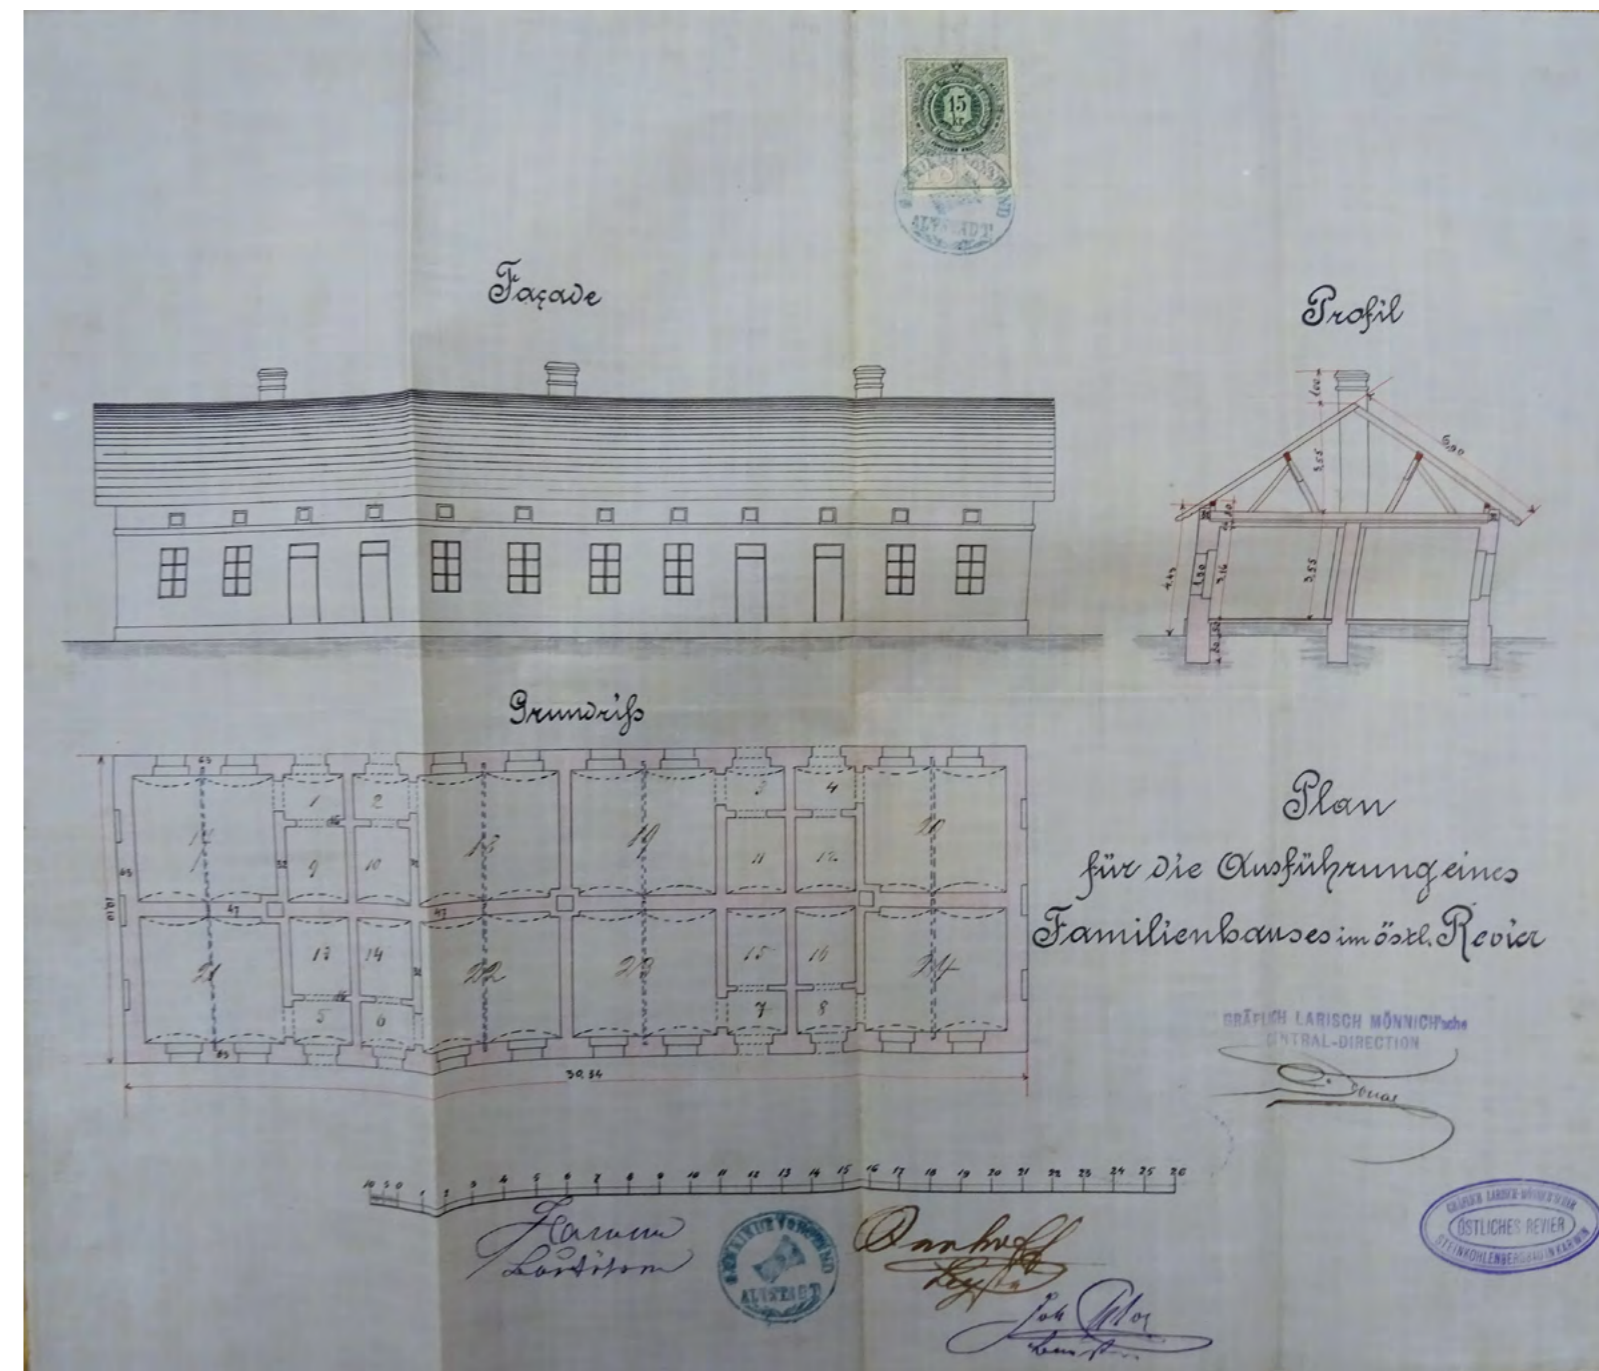 15
kr.
ALTSTADT
Façade
Profil
1,00
3,55
6,90
4,43
1,90
3,16
3,55
Grundriß
1 2 3 4
18 19 20
9 10 11 12
47 47
10,10
13 14 15 16
21 22 23 24
5 6 7 8
30,34
Plan
für die Ausführung eines
Familienhauses im östl. Revier
GRÄFLICH LARISCH MÖNNICH'sche
CENTRAL-DIRECTION
10 5 0 1 2 3 4 5 6 7 8 9 10 11 12 13 14 15 16 17 18 19 20 21 22 23 24 25 26
ALTSTADT
GRÄFLICH LARISCH-MÖNNICH'SCHER
ÖSTLICHES REVIER
STEINKOHLENBERGBAU IN KARWIN